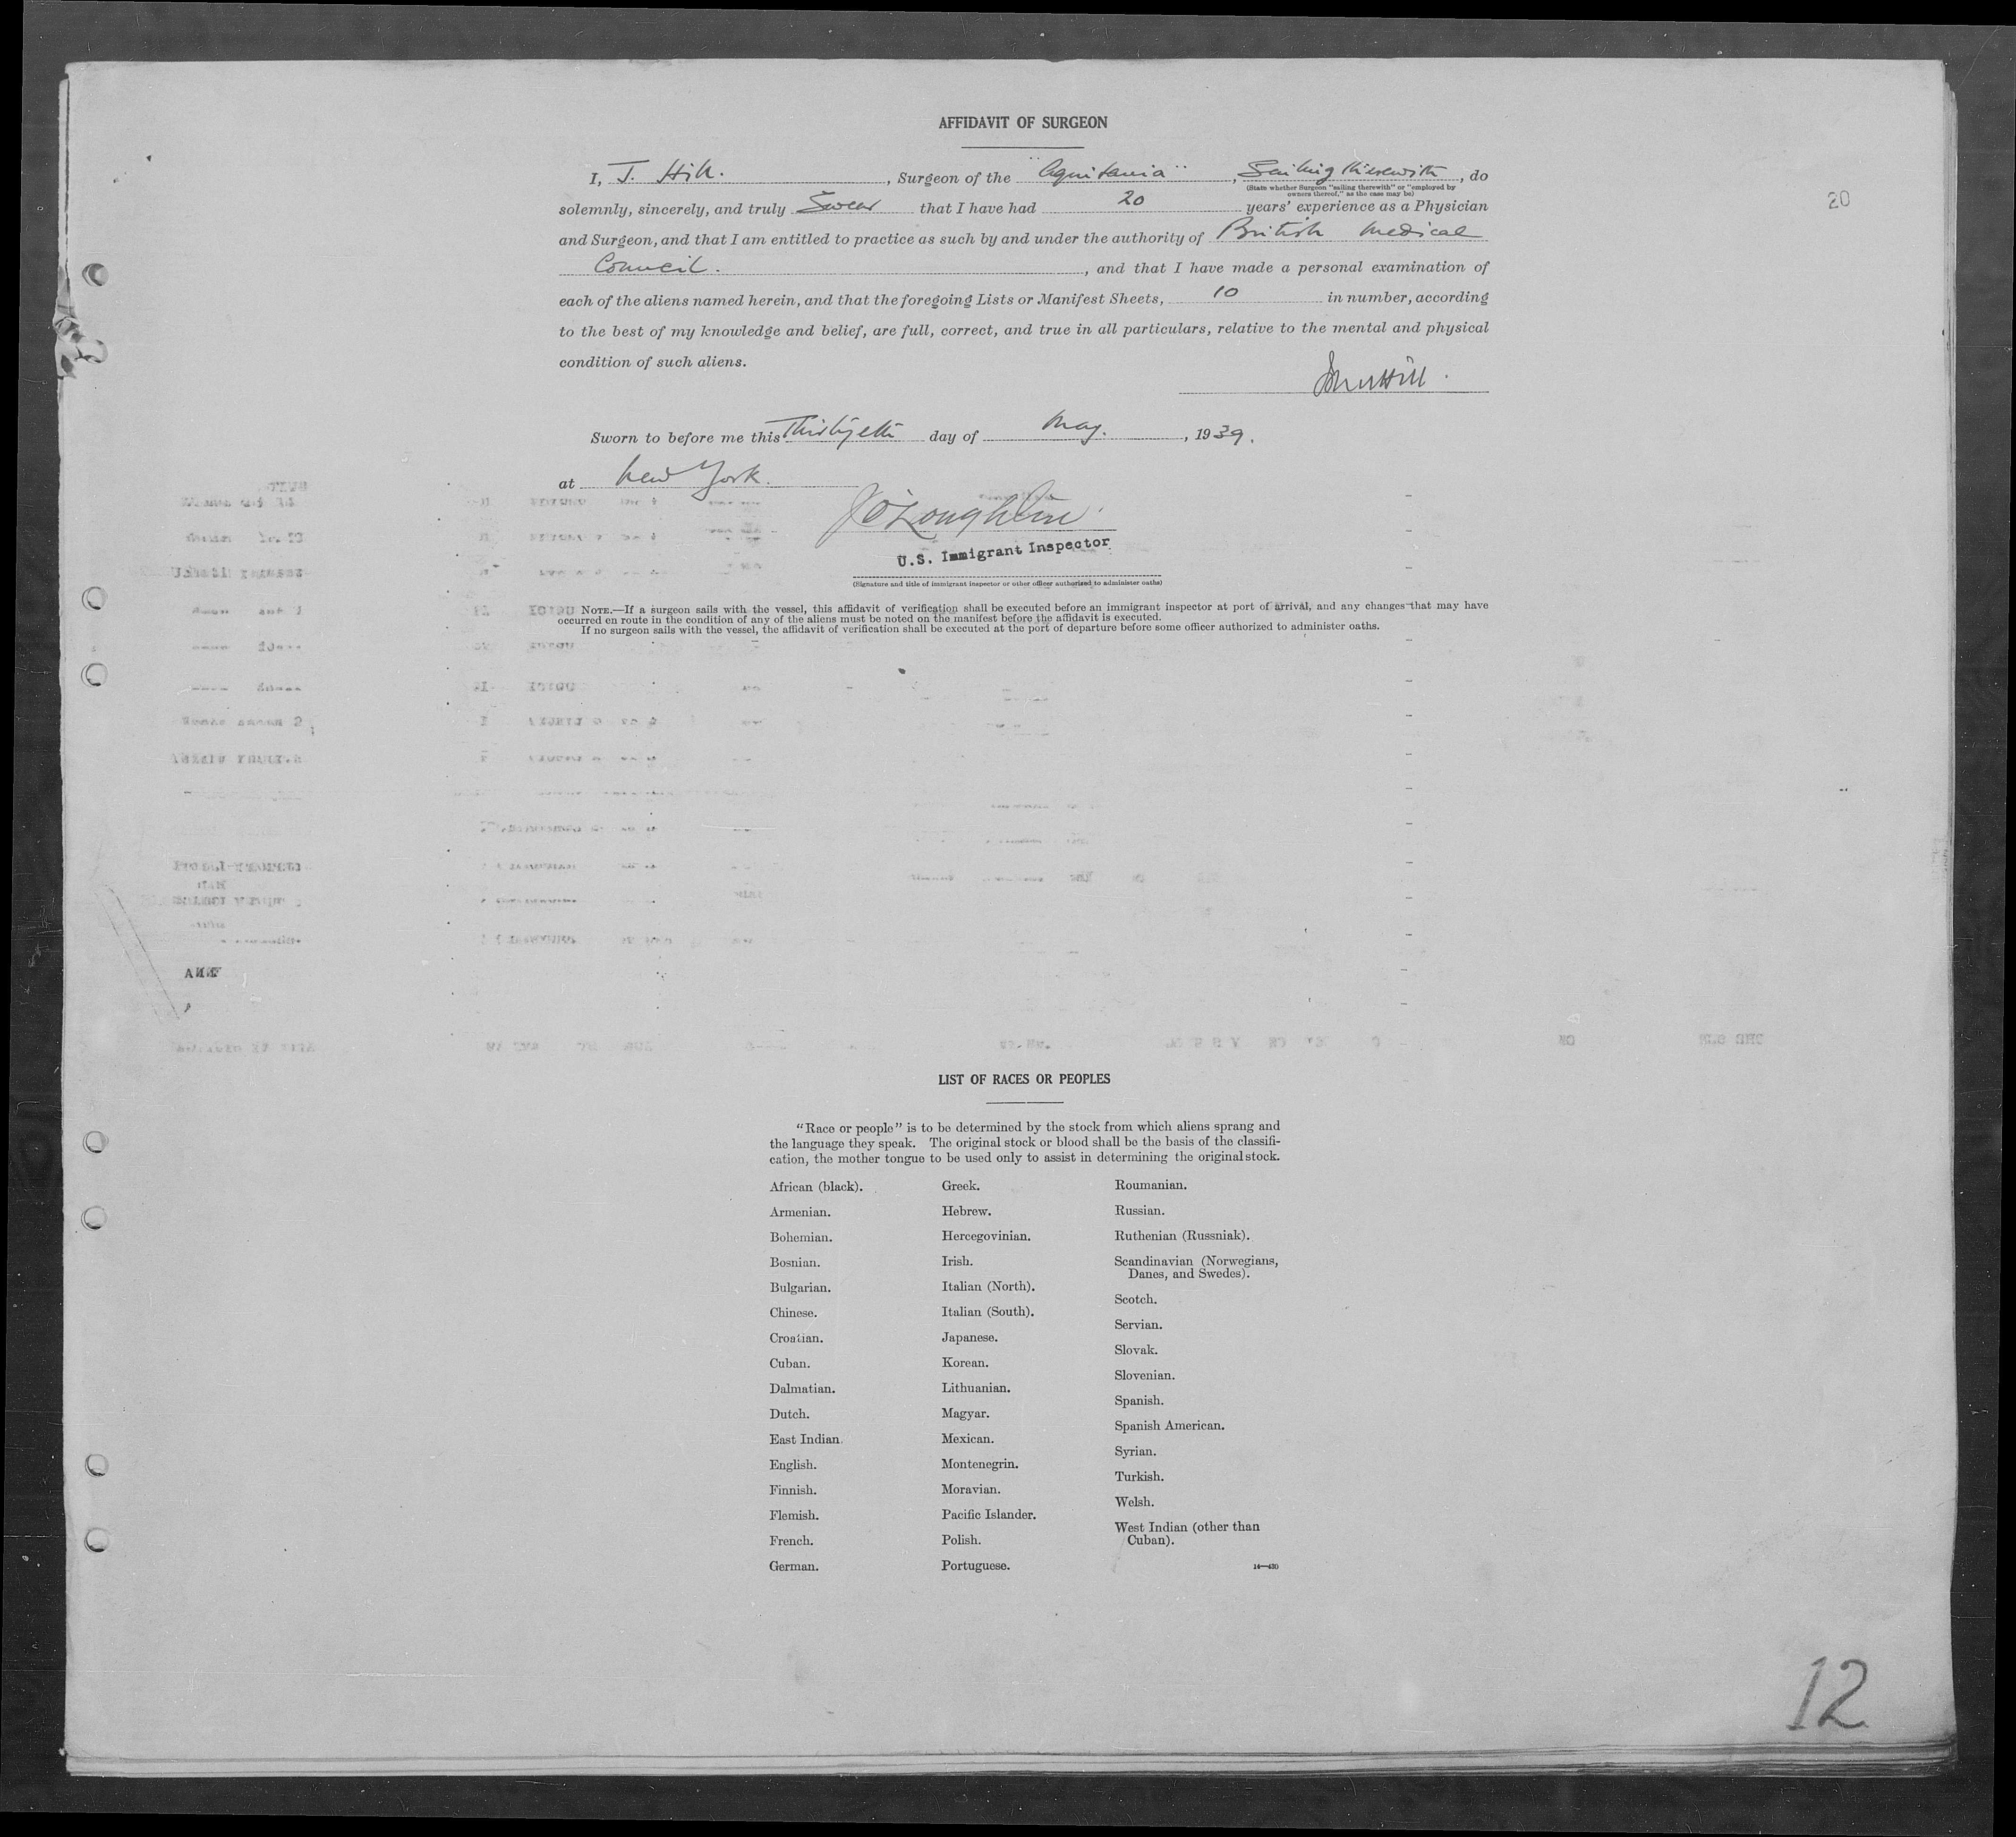 AFFIDAVIT OF SURGEON
I, J. Hill. , Surgeon of the "Aquitania" , Sailing therewith , do
(State whether Surgeon "sailing therewith" or "employed by
owners thereof," as the case may be)
20
solemnly, sincerely, and truly Swear that I have had 20 years' experience as a Physician
and Surgeon, and that I am entitled to practice as such by and under the authority of British Medical
Council. , and that I have made a personal examination of
each of the aliens named herein, and that the foregoing Lists or Manifest Sheets, 10 in number, according
to the best of my knowledge and belief, are full, correct, and true in all particulars, relative to the mental and physical
condition of such aliens.
Sworn to before me this Thirtyeth day of May. , 1939.
at New York.
J O'Loughlin
U.S. Immigrant Inspector
(Signature and title of immigrant inspector or other officer authorized to administer oaths)
NOTE.—If a surgeon sails with the vessel, this affidavit of verification shall be executed before an immigrant inspector at port of arrival, and any changes that may have
occurred en route in the condition of any of the aliens must be noted on the manifest before the affidavit is executed.
If no surgeon sails with the vessel, the affidavit of verification shall be executed at the port of departure before some officer authorized to administer oaths.
LIST OF RACES OR PEOPLES
"Race or people" is to be determined by the stock from which aliens sprang and
the language they speak. The original stock or blood shall be the basis of the classifi-
cation, the mother tongue to be used only to assist in determining the original stock.
African (black).
Armenian.
Bohemian.
Bosnian.
Bulgarian.
Chinese.
Croatian.
Cuban.
Dalmatian.
Dutch.
East Indian.
English.
Finnish.
Flemish.
French.
German.
Greek.
Hebrew.
Hercegovinian.
Irish.
Italian (North).
Italian (South).
Japanese.
Korean.
Lithuanian.
Magyar.
Mexican.
Montenegrin.
Moravian.
Pacific Islander.
Polish.
Portuguese.
Roumanian.
Russian.
Ruthenian (Russniak).
Scandinavian (Norwegians,
Danes, and Swedes).
Scotch.
Servian.
Slovak.
Slovenian.
Spanish.
Spanish American.
Syrian.
Turkish.
Welsh.
West Indian (other than
Cuban).
14—430
12